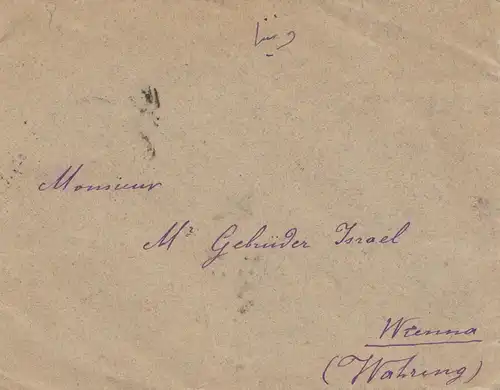 Monsieur
Mr Gebrüder Israel
Wienna
(Wahring)